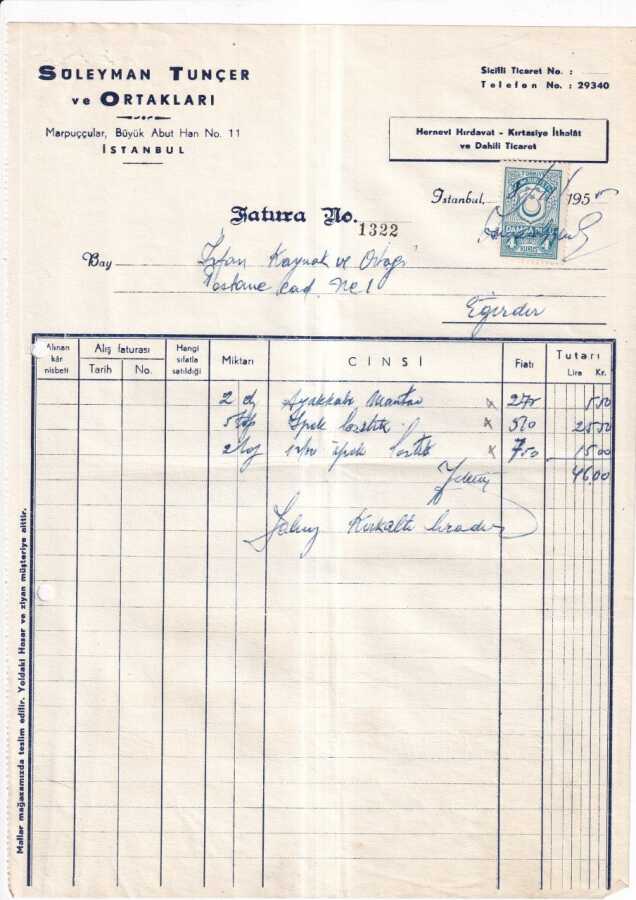 SÜLEYMAN TUNÇER
ve ORTAKLARI
Marpuççular, Büyük Abut Han No. 11
İSTANBUL
Sicilli Ticaret No. :
Telefon No. : 29340
Hernevi Hırdavat - Kırtasiye İthalât
ve Dahili Ticaret
İstanbul, 195
TÜRKİYE
DAMGA PULU
KURUŞ
Fatura No. 1322
Bay İrfan Kaynak ve Ortağı
Postane cad. No 1
Eğirdir
Alınan kâr nisbeti
Alış faturası
Tarih No.
Hangi sıfatla satıldığı
Miktarı
CİNSİ
Fiatı
Tutarı
Lira Kr.
2 Ayakkabı 275 550
5 İpek lastik 510 2550
2 ipek lastik 750 1500
46.00
Yalnız Kırkaltı liradır
Mallar mağazamızda teslim edilir. Yoldaki Hasar ve ziyan müşteriye aittir.